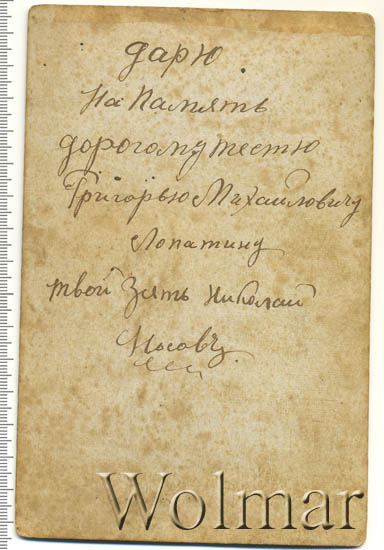 дарю
На Память
дорогому тестю
Григорью Михайловичу
Лопатину
твой Зять Николай
Носовъ
Wolmar